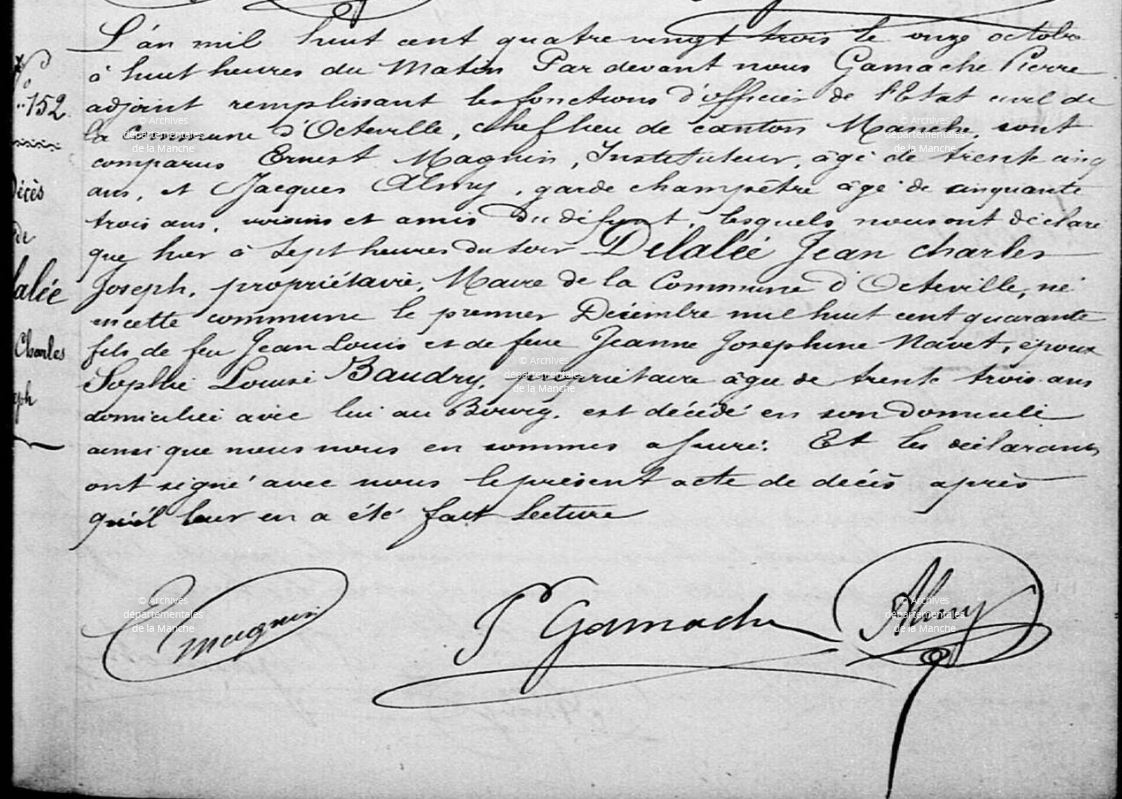 L'an mil huit cent quatre vingt trois le onze octobre
à huit heures du Matin Par devant nous Gamache Pierre
adjoint remplissant les fonctions d'officier de l'Etat civil de
la Commune d'Octeville, chef lieu de canton Manche, sont
comparus Ernest Magnin, Instituteur, âgé de trente cinq
ans, et Jacques Almy, garde champêtre âgé de cinquante
trois ans, voisins et amis du défunt, lesquels nous ont déclaré
que hier à Sept heures du soir Delalée Jean Charles
Joseph, propriétaire, Maire de la Commune d'Octeville, né
en cette commune le premier Décembre mil huit cent quarante
fils de feu Jean Louis et de feue Jeanne Josephine Navet, époux
Sophie Louise Baudry, propriétaire âgée de trente trois ans
domiciliée avec lui au Bourg, est décédé en son domicile
ainsi que nous nous en sommes assuré. Et les déclarants
ont signé avec nous le présent acte de décès après
qu'il leur en a été fait lecture
152
Décès
de
alée
Charles
eph
Magnin
P Gamache
Almy
© Archives
départementales
de la Manche
© Archives
départementales
de la Manche
© Archives
départementales
de la Manche
© Archives
départementales
de la Manche
© Archives
départementales
de la Manche